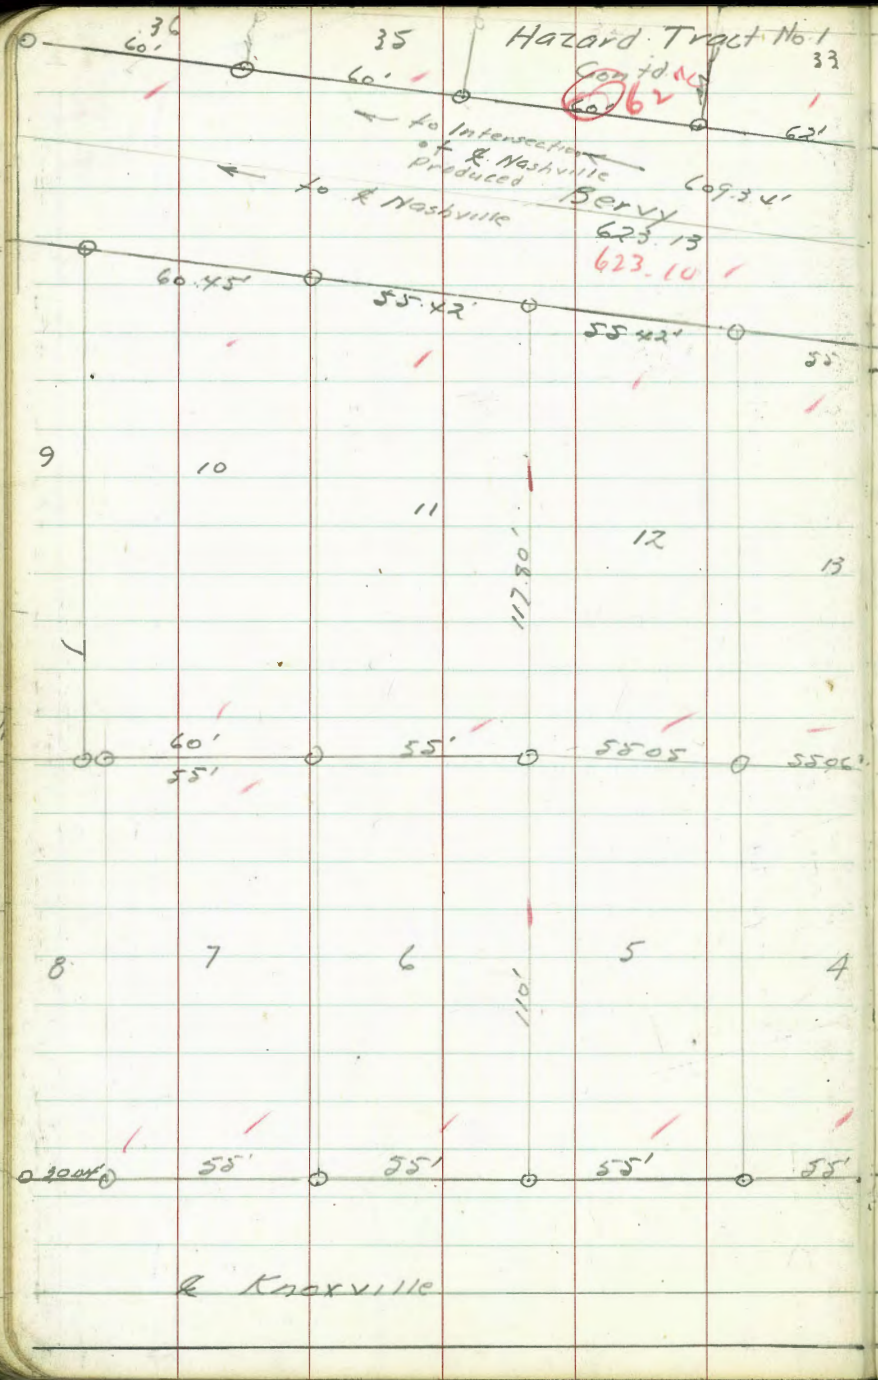 36 35 Hazard Tract No. 1
Cont'd. 33
60' 60' 60' 62 62'
← to Intersection
of ℄ Nashville
produced
609.34'
← to ℄ Nashville Bervy
623.13
623.10
60.45' 55.42' 55.42' 55
9 10 11 12 13
117.80'
60' 55' 55.05 55.06'
55'
8 7 6 5 4
110'
20.04' 55' 55' 55' 55'
℄ Knoxville